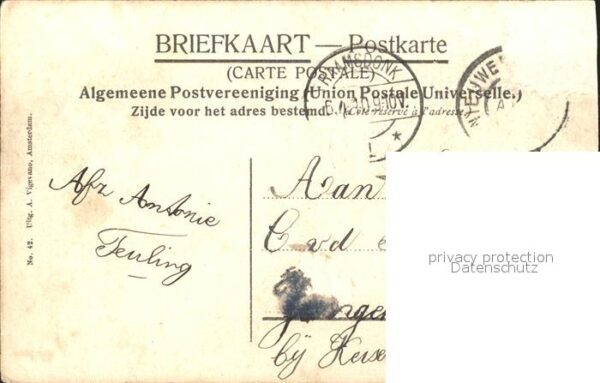 BRIEFKAART — Postkarte
(CARTE POSTALE)
Algemeene Postvereeniging (Union Postale Universelle.)
Zijde voor het adres bestemd. (Côté réservé à l'adresse
RAAMSDONK
9-10V.
No. 42. Uitg. A. Vigevano, Amsterdam.
Afz Antonie
Teuling
Aan
bij
privacy protection
Datenschutz